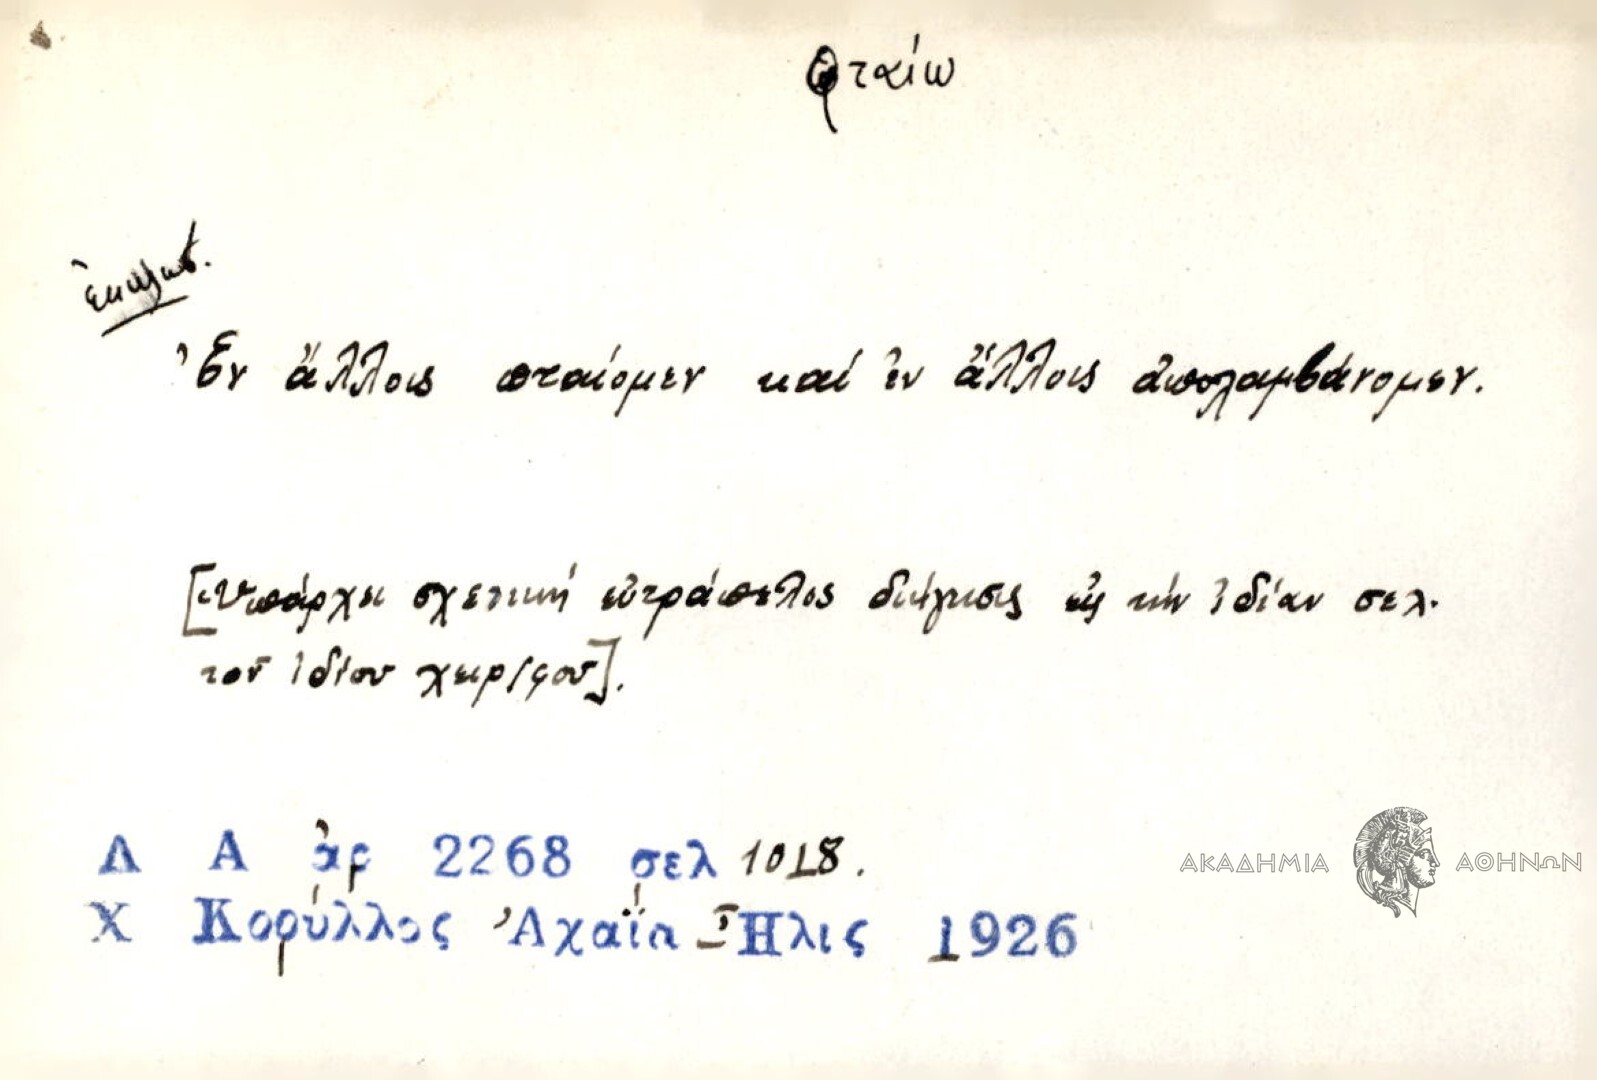 φταίω
ἐκκλησ.
Ἐν ἄλλοις πταίομεν καί ἐν ἄλλοις ἀπολαμβάνομεν.
[Ὑπάρχει σχετική εὐτράπελος διήγησις εἰς τήν ἰδίαν σελ.
τοῦ ἰδίου χειρ/φου].
Λ Α ἀρ 2268 σελ 1018.
Χ Κορύλλος Ἀχαΐα Ἦλις 1926
ΑΚΑΔΗΜΙΑ ΑΘΗΝΩΝ